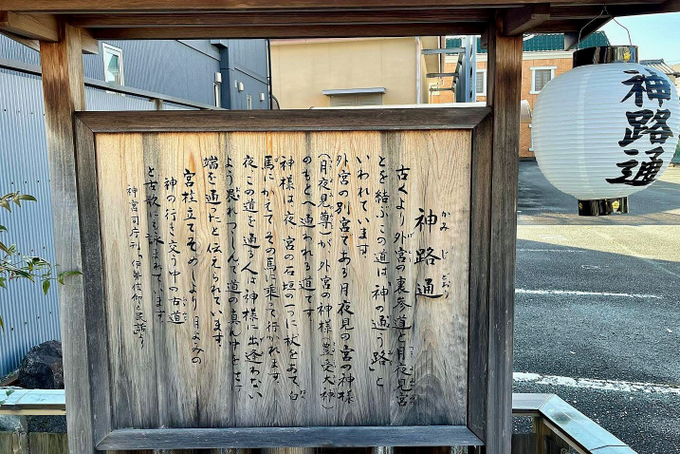 神路通
かみ じ どおり
古くより外宮の裏参道と月夜見宮
とを結ぶこの道は「神の通う路」と
いわれています
外宮の別宮である月夜見の宮の神様
(月夜見尊)が外宮の神様(豊受大神)
のもとへ通われる道です
神様は夜、宮の石垣の一つに杖をあて、白
馬にかえてその馬に乗って行かれます
夜、この道を通る人は神様に出逢わない
よう恐れつつしんで道の真ん中をさけ
端を通ったと伝えられています
宮柱立てそめしより月よみの
神の行き交う中の古道
と古歌にも詠まれています
神宮司庁刊 伊勢信仰と民話より
神路通